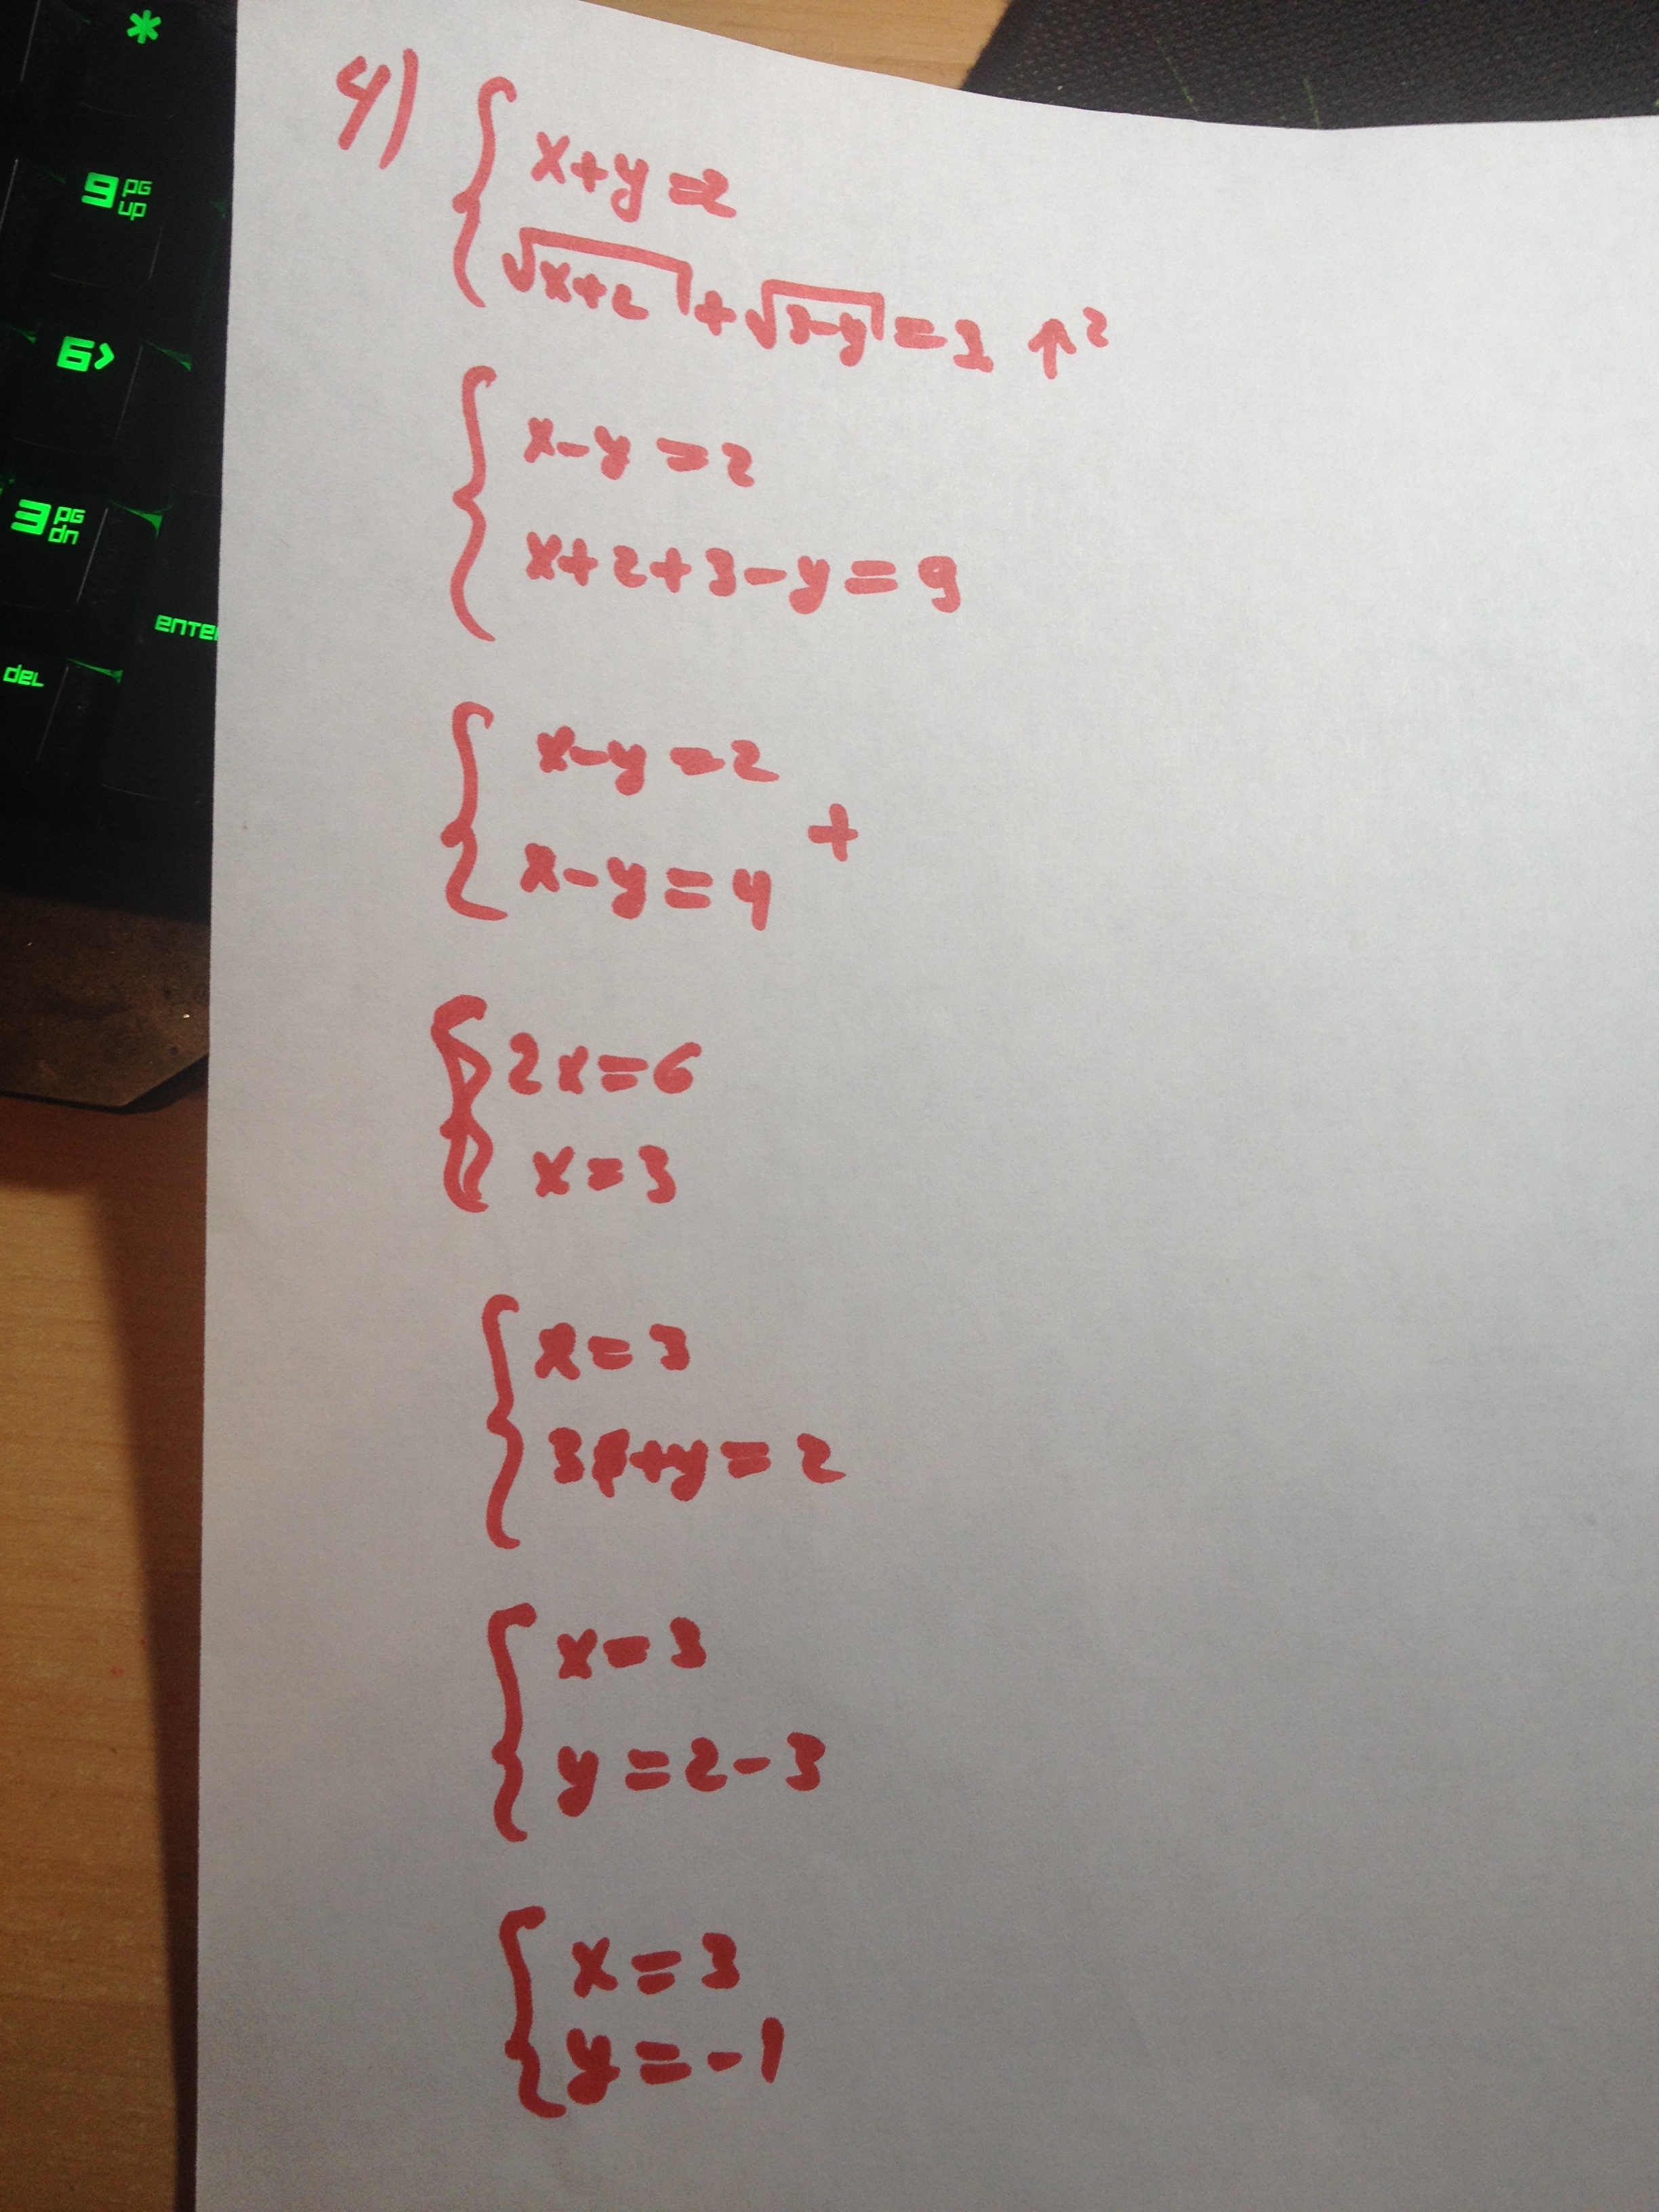 *
9 pg up
6>
3 pg dn
ente
del
4)
x+y=2
√x+2 + √3-y = 3 ↑²
x-y=2
x+2+3-y=9
x-y=2
+
x-y=4
2x=6
x=3
x=3
3+y=2
x=3
y=2-3
x=3
y=-1